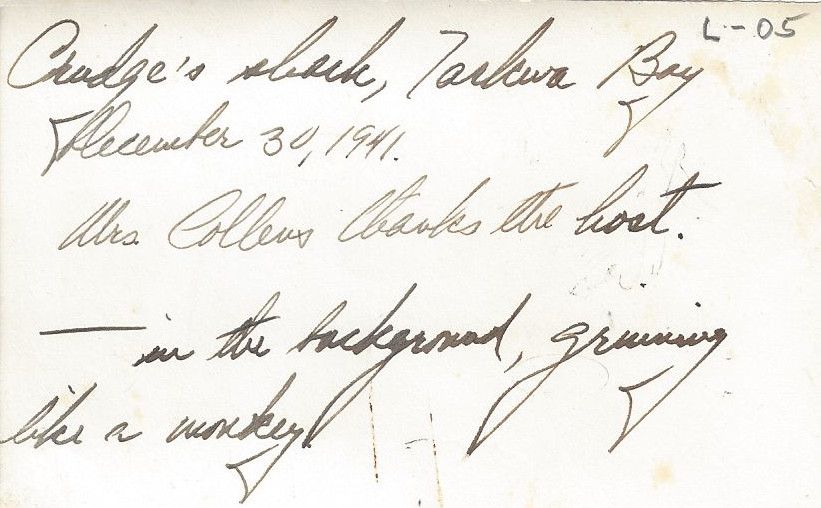 L-05
Crudge's shack, Tarkwa Bay
December 30, 1941.
Mrs. Collens thanks the host.
— in the background, grinning
like a monkey!